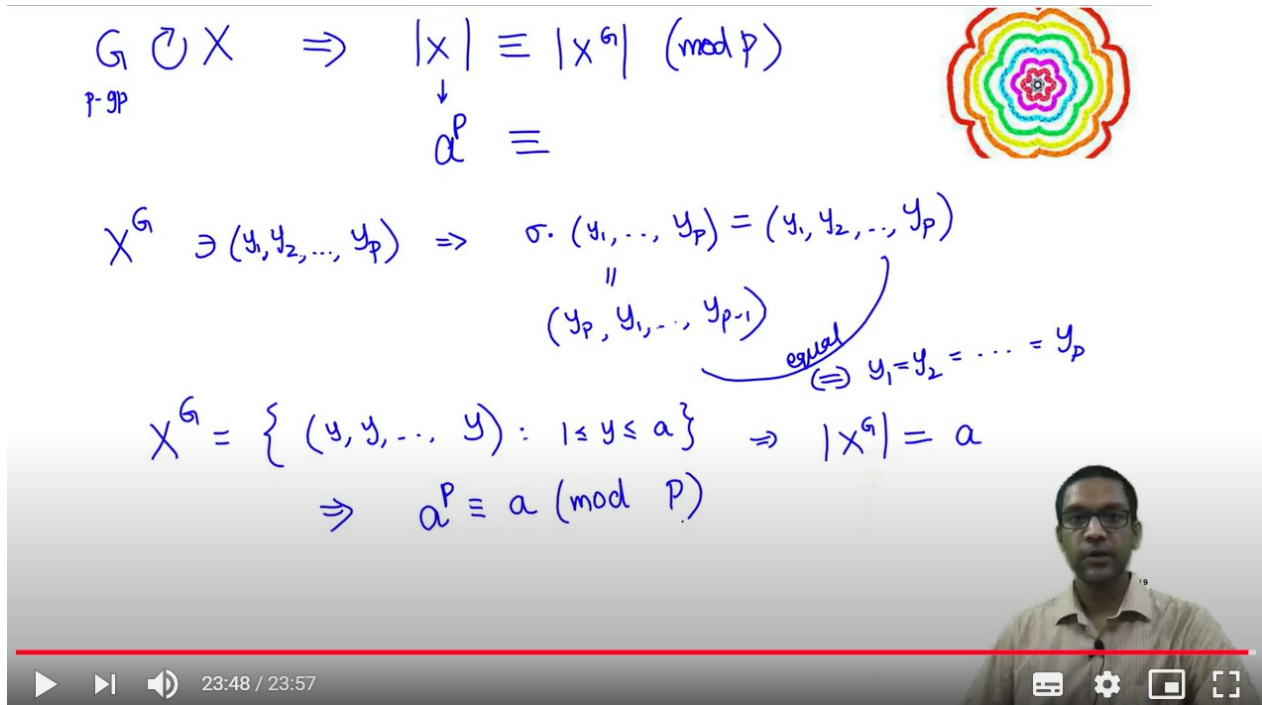 G ↻ X ⇒ |X| ≡ |X^G| (mod p)
p-gp ↓
a^p ≡
X^G ∋ (y₁, y₂, ..., y_p) ⇒ σ. (y₁, .., y_p) = (y₁, y₂, .., y_p)
||
(y_p, y₁, .., y_{p-1})
equal
(⇒) y₁ = y₂ = ... = y_p
X^G = { (y, y, ... y) : 1 ≤ y ≤ a } ⇒ |X^G| = a
⇒ a^p ≡ a (mod p)
19
23:48 / 23:57